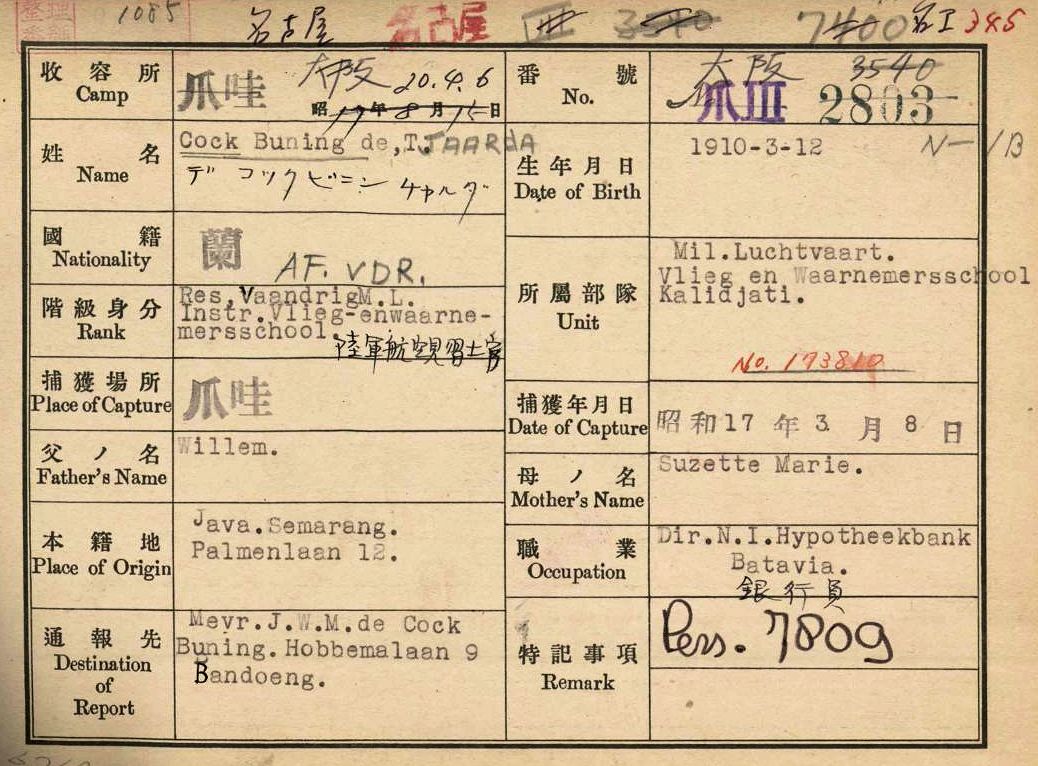 整理
1085 名古屋 名古屋 3540 7400 名工 385
收容所
Camp
爪哇 大阪 20.4.6
昭17年8月15日
番號
No.
大阪 3540
爪III 2803
姓名
Name
Cock Buning de,T.JAARDA
デ コック ビニン チャルダ
生年月日
Date of Birth
1910-3-12
國籍
Nationality
蘭
AF. VDR.
階級身分
Rank
Res,VaandrigM.L.
Instr.Vlieg-enwaarne-
mersschool.
陸軍航空見習士官
所屬部隊
Unit
Mil.Luchtvaart.
Vlieg en Waarnemersschool
Kalidjati.
No. 173810
捕獲場所
Place of Capture
爪哇
捕獲年月日
Date of Capture
昭和17年3月8日
父ノ名
Father's Name
Willem.
母ノ名
Mother's Name
Suzette Marie.
本籍地
Place of Origin
Java.Semarang.
Palmenlaan 12.
職業
Occupation
Dir.N.I.Hypotheekbank
Batavia.
銀行員
通報先
Destination
of
Report
Mevr.J.W.M.de Cock
Buning.Hobbemalaan 9
Bandoeng.
特記事項
Remark
Pers. 7809